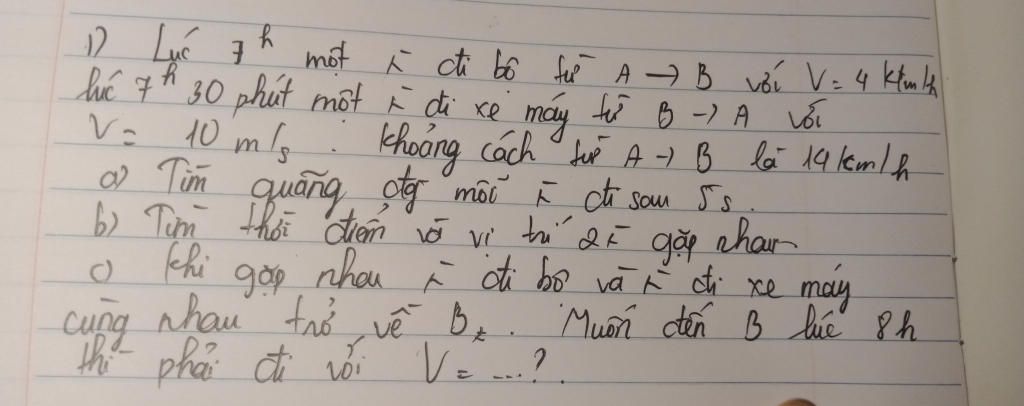 1) Lúc 7h một x̄ đi bộ từ A → B với V = 4 km/h
lúc 7h 30 phút một x̄ đi xe máy từ B → A với
V = 10 m/s. Khoảng cách từ A → B là 14 km/h
a) Tìm quãng đg mỗi x̄ đi sau 5s.
b) Tìm thời điểm và vị trí 2 x̄ gặp nhau
c) Khi gặp nhau x̄ đi bộ và x̄ đi xe máy
cùng nhau trở về B. Muốn đến B lúc 8h
thì phải đi với V = ...?.